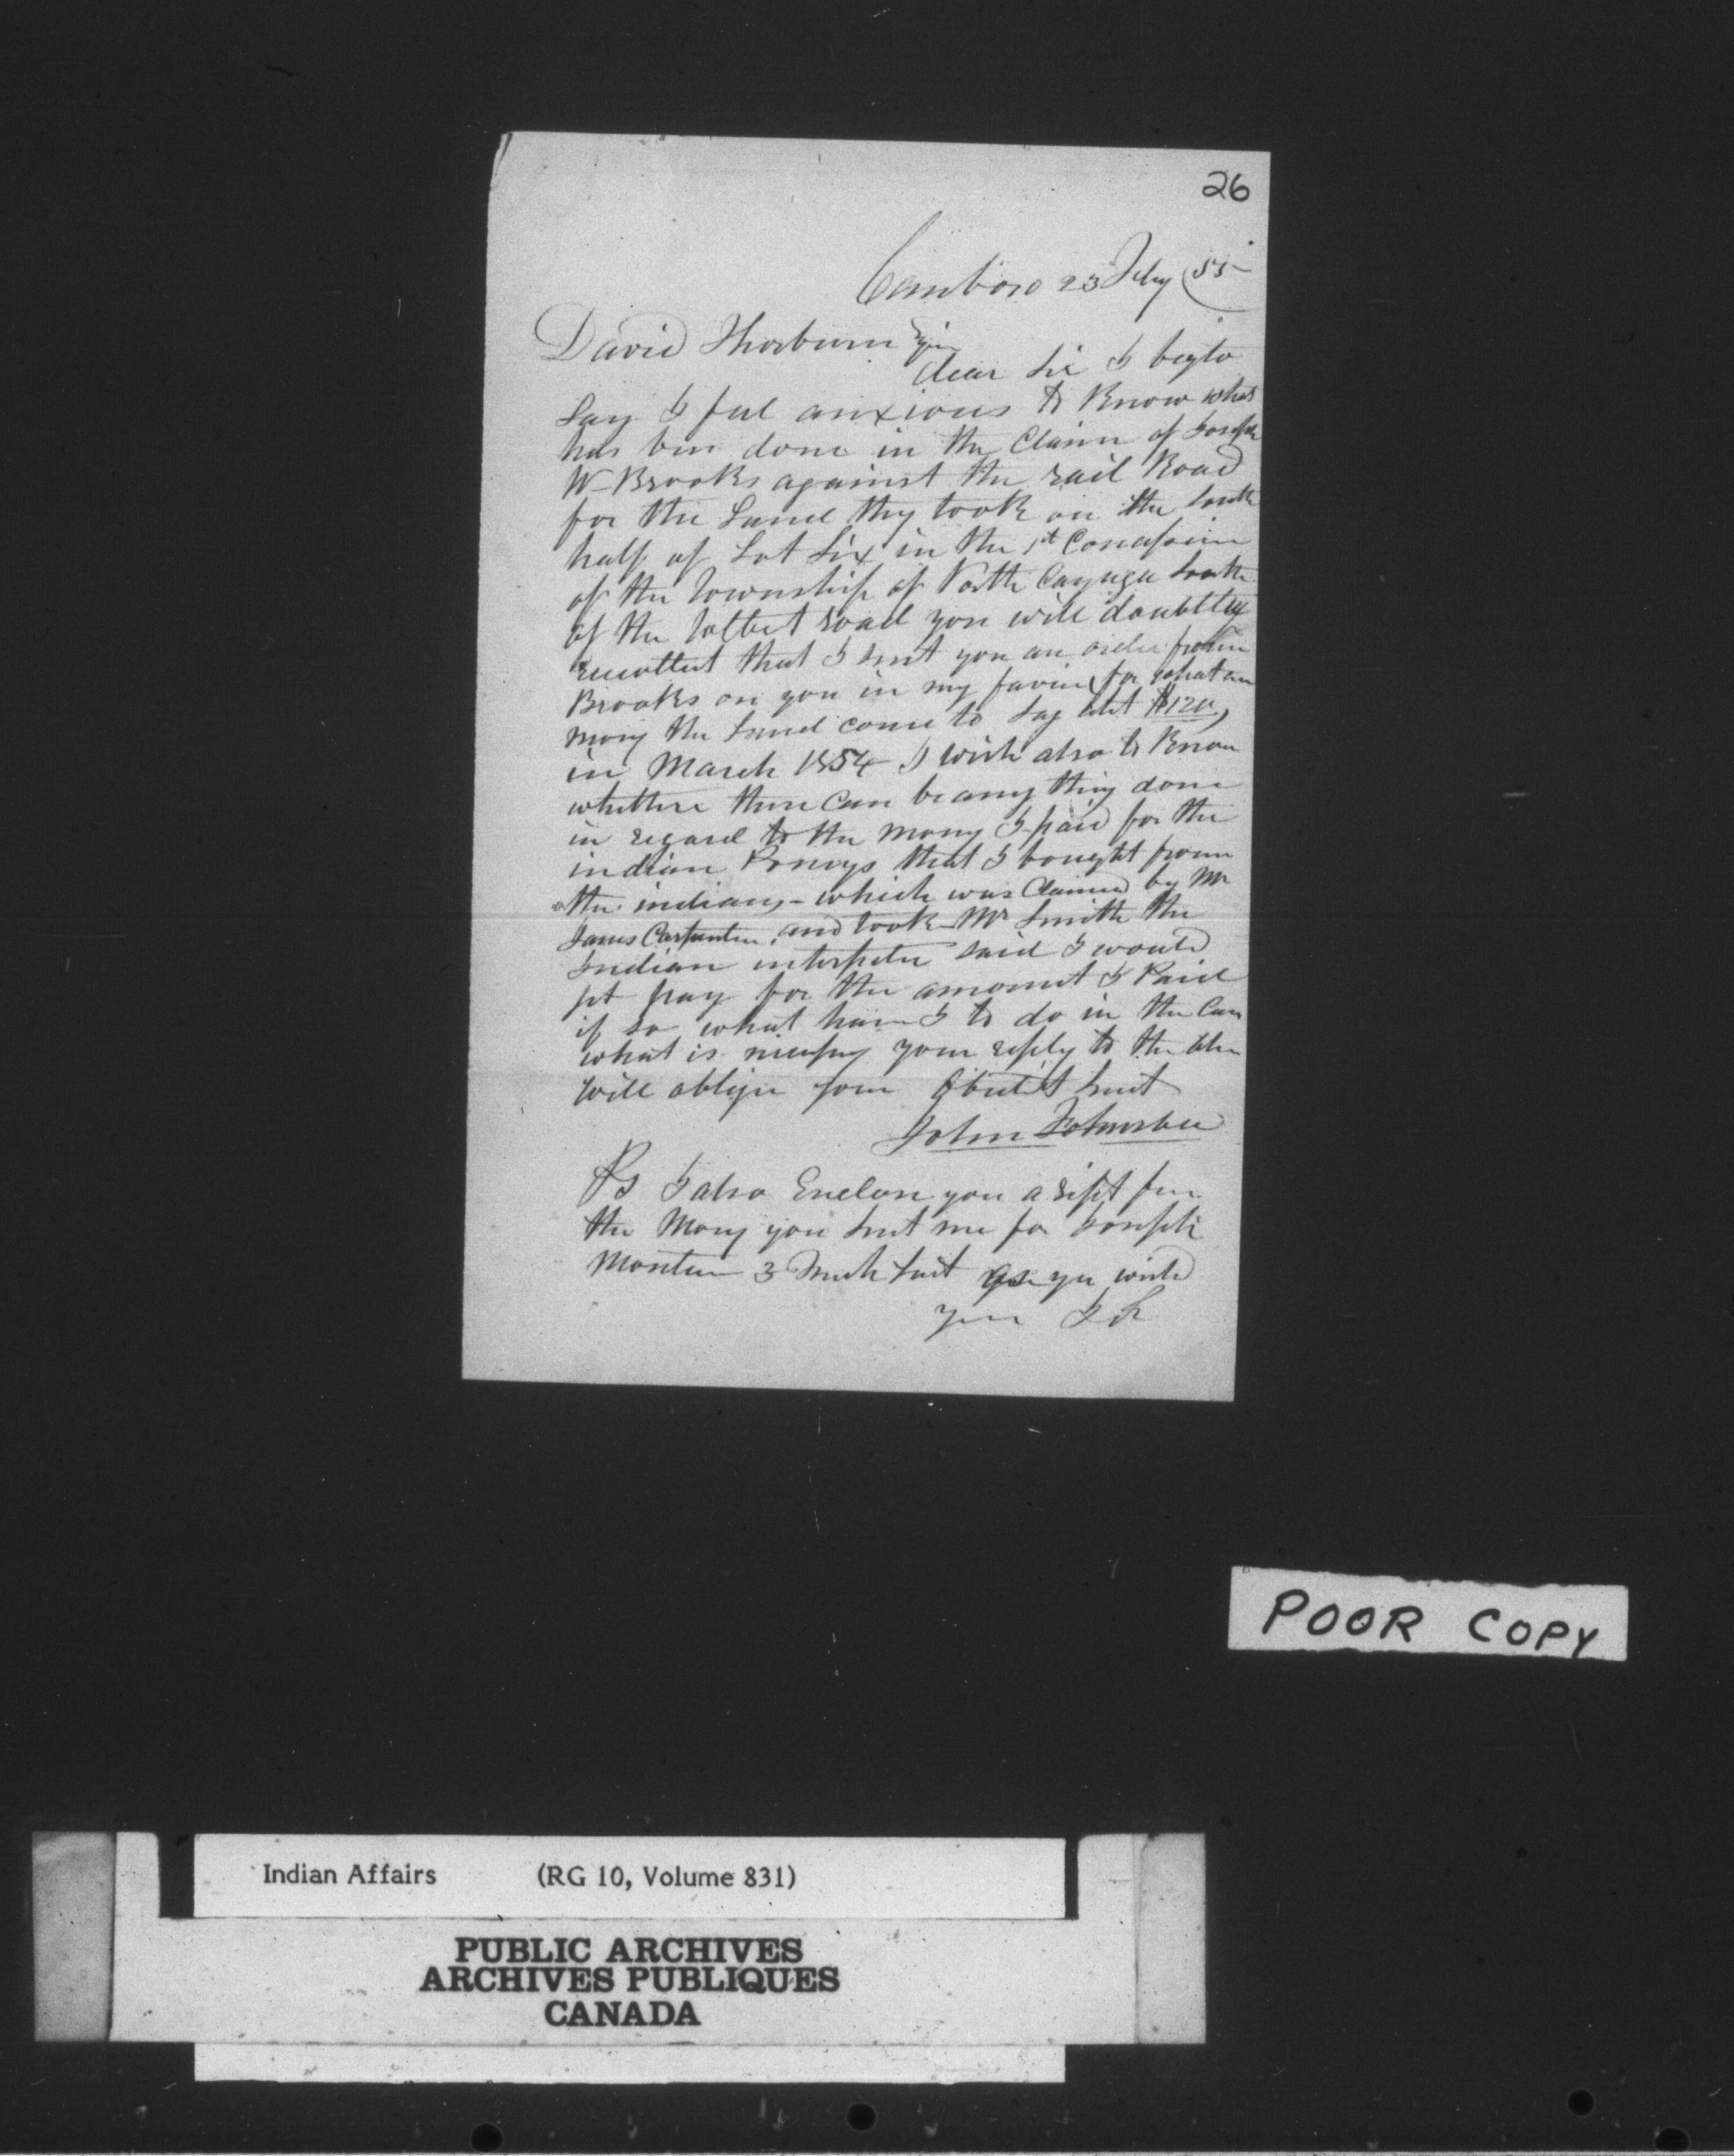 26
Canboro 23 Feby (55
David Thorburn Esqr
dear Sir I beg to
Say I feel anxious to Know what
has bin done in the Claim of Joseph
W Brooks against the rail Road
for the Land they took on the South
half of Lot Six in the 1st Concession
of the Township of North Cayuga South
of the Talbot road you will doubtless
recollect that I sent you an order from
Brooks on you in my favour for what ever
mony the Land come to Say abt $120,
in March 1854 I wish also to Know
whether there Can be any thing done
in regard to the mony I paid for the
indian Poneys that I bought from
the indians - which was Claimed by Mr
James Carpenter, and took Mr Smith the
Indian interpeter said I would
get pay for the amount I Paid
if so what have I to do in the Case
what is nessesary your reply to the abve
will oblige your Obedt Servt
John
PS I also Enclose you a ript for
the Mony you sent me for Joseph
3 you wish
your
POOR COPY
Indian Affairs (RG 10, Volume 831)
PUBLIC ARCHIVES
ARCHIVES PUBLIQUES
CANADA